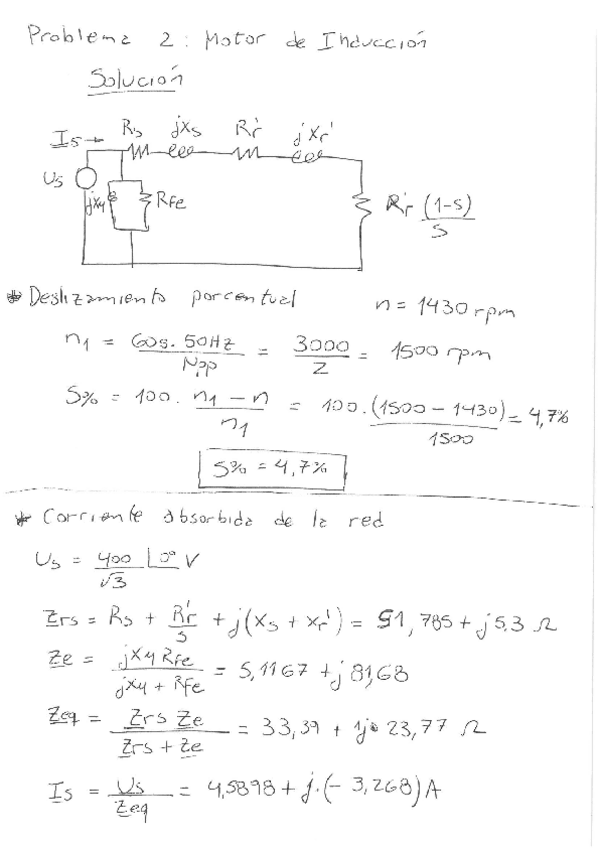 Problema 2: Motor de Inducción
Solución
Is → Rs jXs Rr' jXr'
Us jXμ RFe Rr' (1-s)/s
* Deslizamiento porcentual n = 1430 rpm
n1 = 60s. 50Hz / Npp = 3000 / 2 = 1500 rpm
S% = 100 . (n1 - n) / n1 = 100 . (1500 - 1430) / 1500 = 4,7%
S% = 4,7%
* Corriente absorbida de la red
Us = 400 / √3 ∟0° V
Zrs = Rs + Rr' / s + j(Xs + Xr') = 51,785 + j5.3 Ω
Ze = jXμ RFe / (jXμ + RFe) = 5,1167 + j 81,68
Zeq = Zrs Ze / (Zrs + Ze) = 33,39 + j 23,77 Ω
Is = Us / Zeq = 4,5898 + j.(- 3,268) A